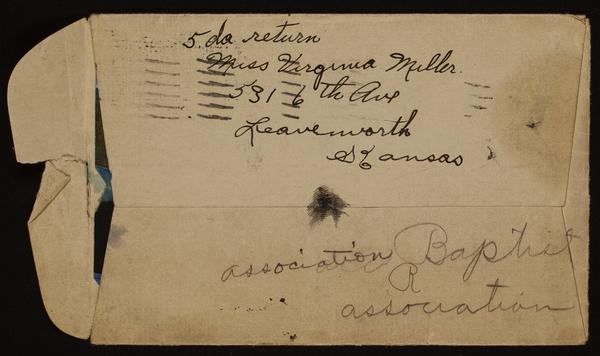 5. da return
Miss Virginia Miller.
531 6 th Ave
Leavenworth
Kansas
association Baptist
R
association